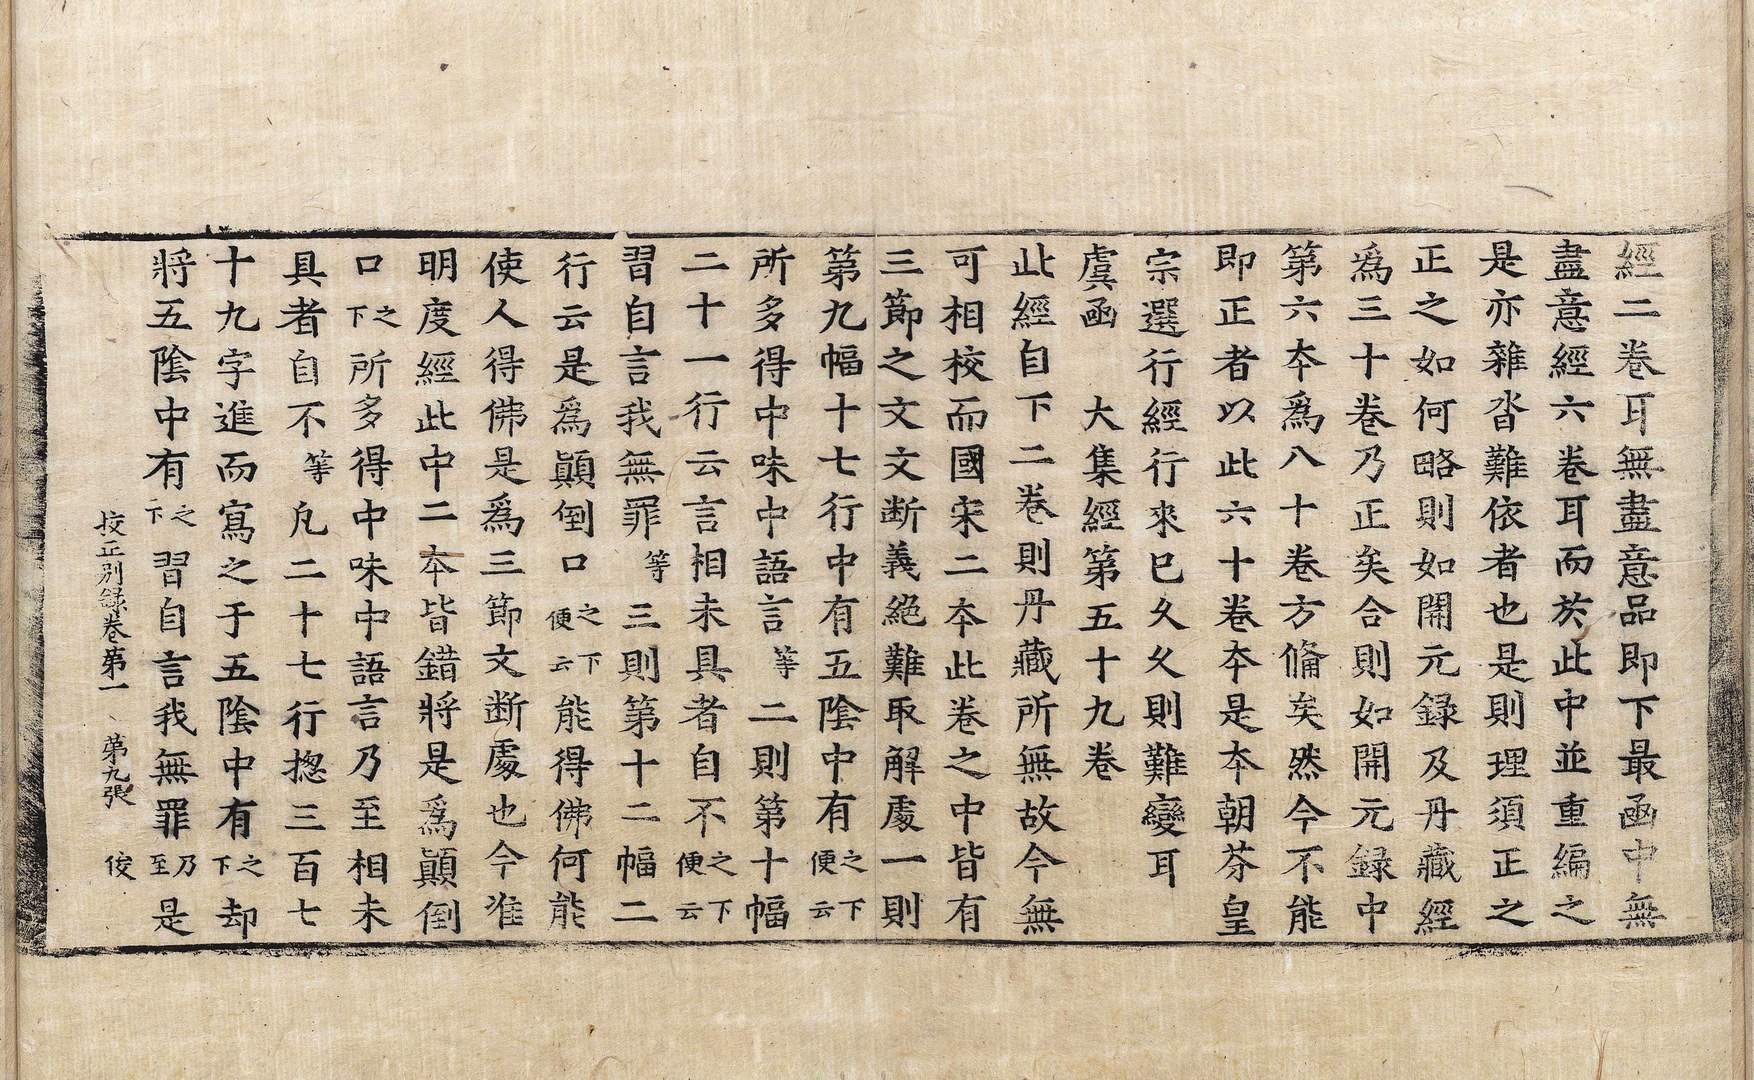 經二卷耳無盡意品即下最函中無
盡意經六卷耳而於此中並重編之
是亦雜沓難依者也是則理須正之
正之如何略則如開元録及丹藏經
爲三十卷乃正矣合則如開元録中
第六夲爲八十卷方俻矣然今不能
即正者以此六十卷夲是夲朝芬皇
宗選行經行來已久久則難變耳
虞函　大集經第五十九卷
此經自下二卷則丹藏所無故今無
可相校而國宋二夲此卷之中皆有
三節之文文断義絕難取解處一則
第九幅十七行中有五陰中有之下便云
所多得中味中語言等二則第十幅
二十一行云言相未具者自不之下便云
習自言我無罪等三則第十二幅二
行云是爲顚倒口之下便云能得佛何能
使人得佛是爲三節文断處也今准
明度經此中二夲皆錯將是爲顚倒
口之下所多得中味中語言乃至相未
具者自不等凡二十七行揔三百七
十九字進而寫之于五陰中有之下却
將五陰中有之下習自言我無罪乃至是
挍正別録卷第一　第九張　俊